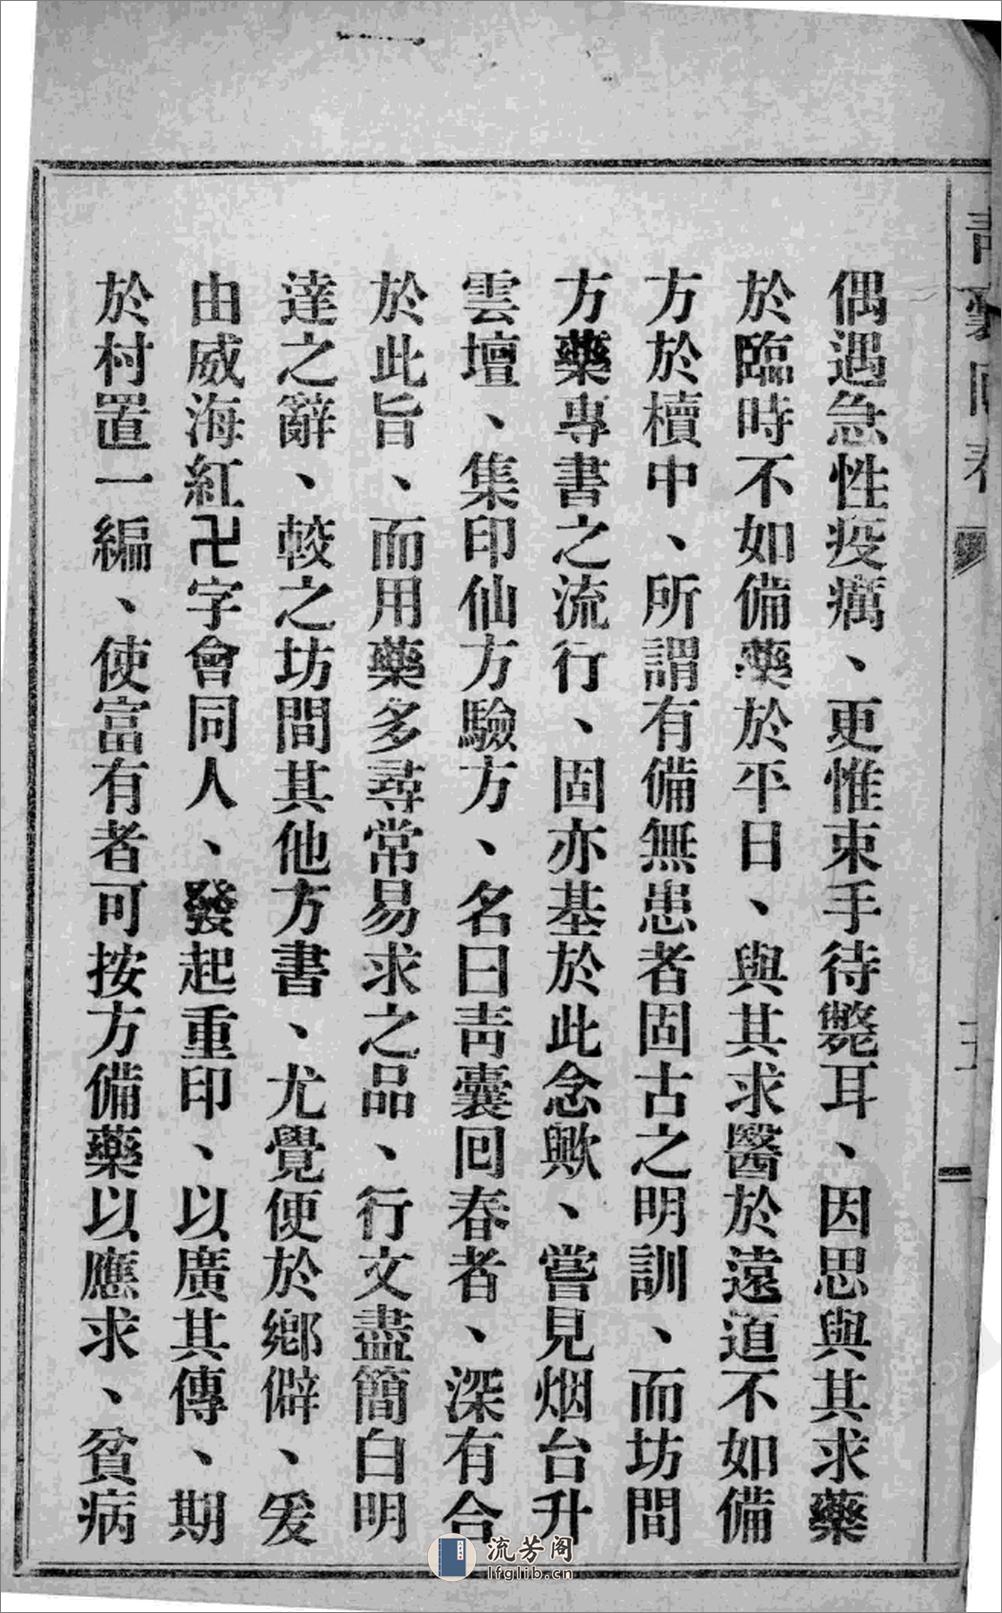 偶遇急性疫癘、更惟束手待斃耳、因思與其求藥
於臨時不如備藥於平日、與其求醫於遠道不如備
方於櫝中、所謂有備無患者固古之明訓、而坊間
方藥專書之流行、固亦基於此念歟、嘗見烟台升
雲壇、集印仙方驗方、名曰靑囊回春者、深有合
於此旨、而用藥多尋常易求之品、行文盡簡白明
達之辭、較之坊間其他方書、尤覺便於鄉僻、爰
由威海紅卍字會同人、發起重印、以廣其傳、期
於村置一編、使富有者可按方備藥以應求、貧病
流芳阁
lfglib.cn